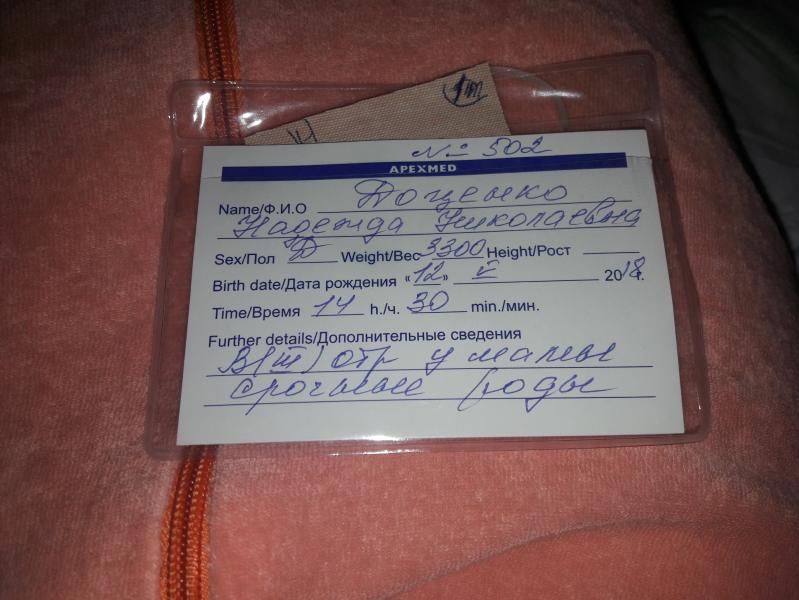 1 пт
№ 502
APEXMED
Name/Ф.И.О Доценко
Надежда Николаевна
Sex/Пол Д Weight/Вес 3300 Height/Рост
Birth date/Дата рождения «12» V 2018г.
Time/Время 14 h./ч. 30 min./мин.
Further details/Дополнительные сведения
В(III) отр у мамы
срочные роды